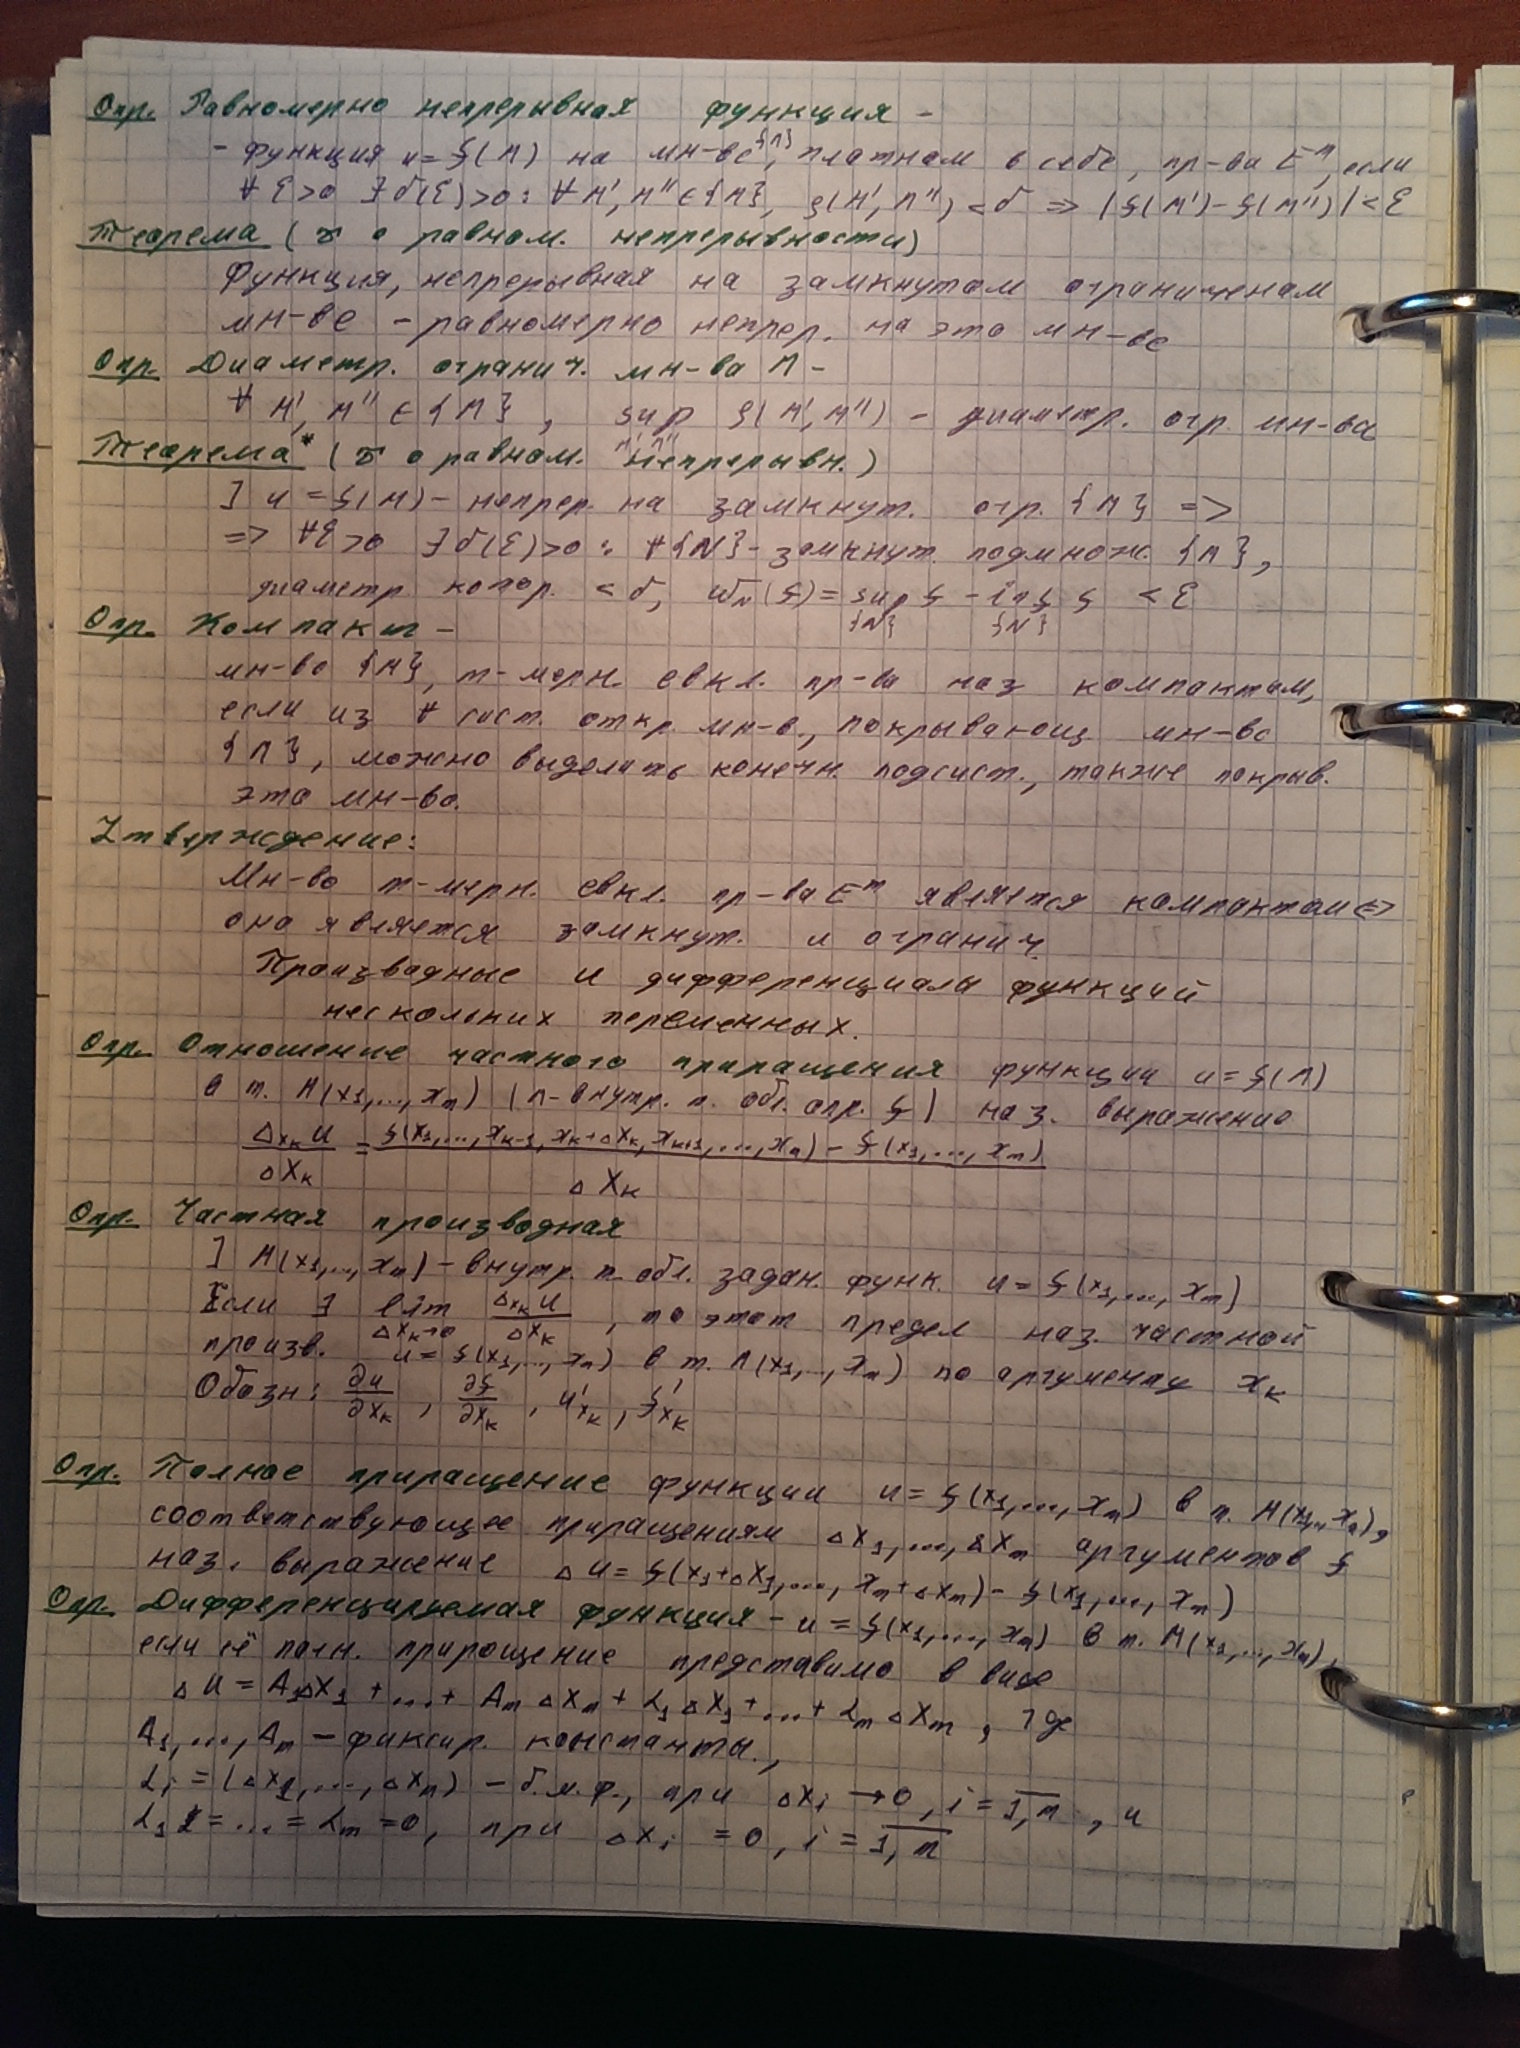 Опр. Равномерно непрерывная функция -
- функция u = f(M) на мн-ве {M}, плотном в себе, пр-ва E^m, если
∀ ε>0 ∃ δ(ε)>0 : ∀ M', M'' ∈ {M}, ρ(M', M'') < δ ⇒ |f(M') - f(M'')| < ε
Теорема (т о равном. непрерывности)
Функция, непрерывная на замкнутом ограниченом
мн-ве - равномерно непрер. на это мн-ве
Опр. Диаметр. огранич. мн-ва M -
∀ M', M'' ∈ {M}, sup ρ(M', M'') - диаметр. огр. мн-ва
M', M''
Теорема* (т о равном. непрерывн.)
] u = f(M) - непрер. на замкнут. огр. {M} =>
=> ∀ε>0 ∃ δ(ε)>0 : ∀{N} - замкнут. подмнож. {M},
диаметр. котор. < δ, ω_N(f) = sup f - inf f < ε
{N} {N}
Опр. Компакт -
мн-во {M}, m-мерн. евкл. пр-ва наз компактом,
если из ∀ сист. откр. мн-в., покрывающ мн-во
{M}, можно выделить конечн. подсист., также покрыв.
это мн-во.
Утверждение:
Мн-во m-мерн. евкл. пр-ва E^m является компактом <=>
оно является замкнут. и огранич.
Производные и дифференциала функций
нескольких переменных.
Опр. Отношение частного приращения функции u = f(M)
в т. M(x₁,...,x_m) (M-внутр. т. обл. опр. f) наз. выражение
Δ_{x_k} u / Δx_k = (f(x₁,...,x_{k-1}, x_k+Δx_k, x_{k+1},...,x_m) - f(x₁,...,x_m)) / Δx_k
Опр. Частная производная
] M(x₁,...,x_m) - внутр. т. обл. задан. функ. u = f(x₁,...,x_m)
Если ∃ lim_{Δx_k→0} Δ_{x_k} u / Δx_k, то этот предел наз. частной
произв. u = f(x₁,...,x_m) в т. M(x₁,...,x_m) по аргументу x_k
Обозн: ∂u/∂x_k, ∂f/∂x_k, u'_{x_k}, f'_{x_k}
Опр. Полное приращение функции u = f(x₁,...,x_m) в т. M(x₁,..,x_m),
соответствующее приращениям Δx₁,...,Δx_m аргументов f
наз. выражение Δu = f(x₁+Δx₁,..., x_m+Δx_m) - f(x₁,...,x_m)
Опр. Дифференцируемая функция - u = f(x₁,...,x_m) в т. M(x₁,...,x_m),
если её полн. прирощение представимо в виде
Δu = A₁Δx₁ + ... + A_m Δx_m + α₁ Δx₁ + ... + α_m Δx_m, где
A₁,...,A_m - фиксир. константы.,
α_i = (Δx₁,...,Δx_m) - б.м.ф., при Δx_i → 0, i = 1,m, и
α₁ = ... = α_m = 0, при Δx_i = 0, i = 1,m